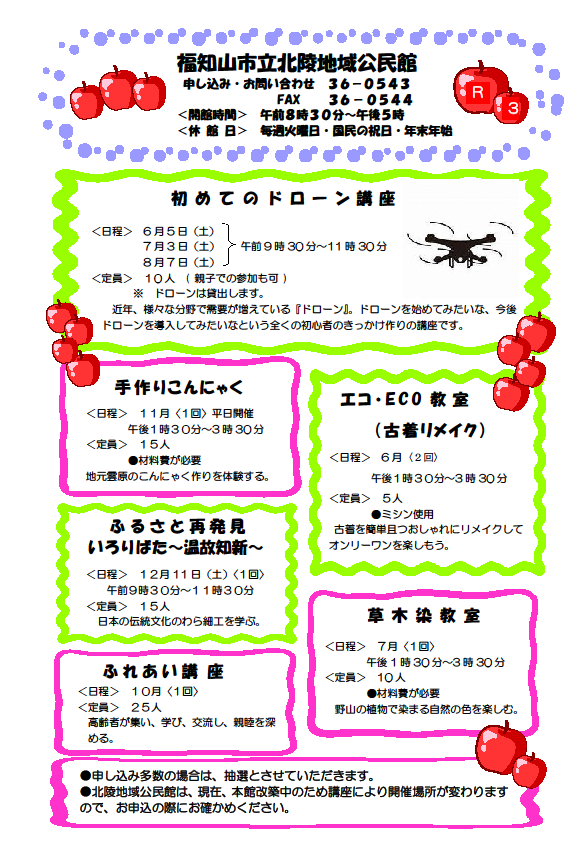 福知山市立北陵地域公民館
申し込み・お問い合わせ ３６－０５４３
FAX ３６－０５４４
＜開館時間＞ 午前８時３０分～午後５時
＜休 館 日＞ 毎週火曜日・国民の祝日・年末年始
R
3
初めてのドローン講座
＜日程＞ ６月５日（土）
７月３日（土） 午前９時３０分～11時３０分
８月７日（土）
＜定員＞ １０人 （ 親子での参加も可 ）
※ ドローンは貸出します。
近年、様々な分野で需要が増えている『ドローン』。ドローンを始めてみたいな、今後
ドローンを導入してみたいなという全くの初心者のきっかけ作りの講座です。
手作りこんにゃく
＜日程＞ １１月〈１回〉平日開催
午後１時３０分～３時３０分
＜定員＞ １５人
●材料費が必要
地元雲原のこんにゃく作りを体験する。
エコ・ECO教室
（古着リメイク）
＜日程＞ ６月〈２回〉
午後１時３０分～３時３０分
＜定員＞ ５人
●ミシン使用
古着を簡単且つおしゃれにリメイクして
オンリーワンを楽しもう。
ふるさと再発見
いろりばた～温故知新～
＜日程＞ １２月１１日（土）〈１回〉
午前９時３０分～１１時３０分
＜定員＞ １５人
日本の伝統文化のわら細工を学ぶ。
草木染教室
＜日程＞ ７月〈１回〉
午後１時３０分～３時３０分
＜定員＞ １０人
●材料費が必要
野山の植物で染まる自然の色を楽しむ。
ふれあい講座
＜日程＞ １０月〈１回〉
＜定員＞ ２５人
高齢者が集い、学び、交流し、親睦を深
める。
●申し込み多数の場合は、抽選とさせていただきます。
●北陵地域公民館は、現在、本館改築中のため講座により開催場所が変わります
ので、お申込の際にお確かめください。